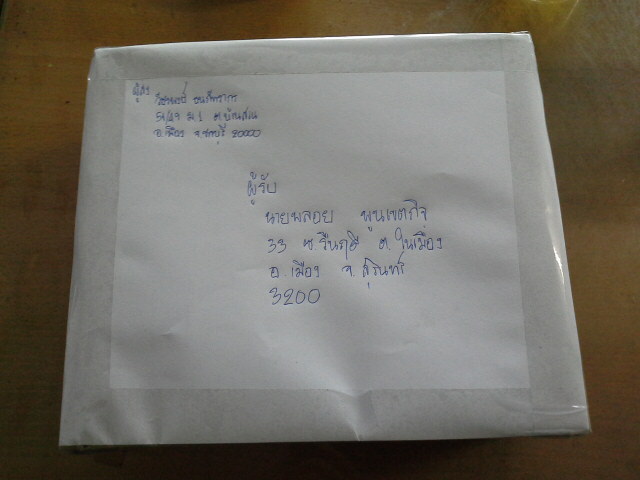 ผู้ส่ง
ธนภัทรากร
ม.1 ต.บ้านสวน
อ.เมือง จ.ชลบุรี 20000
ผู้รับ
นายพลอย พูนเขตกิจ
33 ซ จีนฤดี ต. ในเมือง
อ. เมือง จ. สุรินทร์
3200